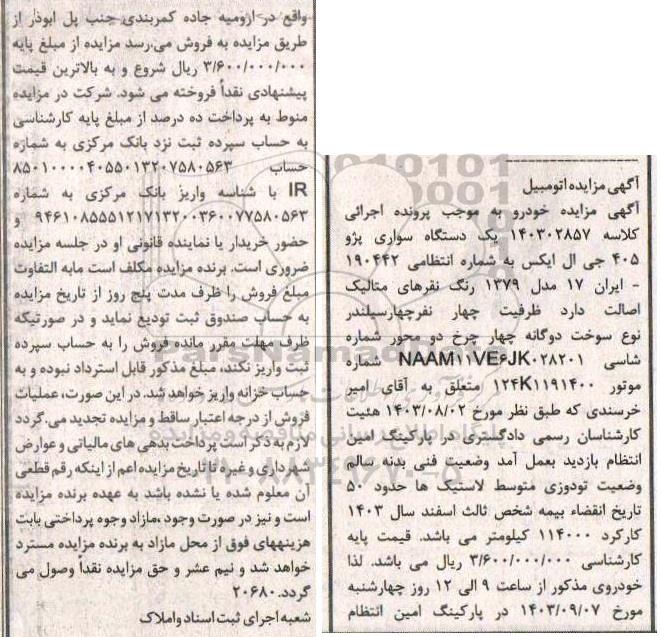 آگهی مزایده اتومبیل
آگهی مزایده خودرو به موجب پرونده اجرائی
کلاسه ۱۴۰۳۰۲۸۵۷ یک دستگاه سواری پژو
۴۰۵ جی ال ایکس به شماره انتظامی ۱۹۰۴۴۲
- ایران ۱۷ مدل ۱۳۷۹ رنگ نقره‌ای متالیک
اصالت دارد ظرفیت چهار نفرچهارسیلندر
نوع سوخت دوگانه چهار چرخ دو محور شماره
شاسی NAAM۱۱VE۶JK۰۲۸۲۰۱ شماره
موتور ۱۲۴K۱۱۹۱۴۰۰ متعلق به آقای امیر
خرسندی که طبق نظر مورخ ۱۴۰۳/۰۸/۰۲ هئیت
کارشناسان رسمی دادگستری در پارکینگ امین
انتظام بازدید بعمل آمد وضعیت فنی بدنه سالم
وضعیت تودوزی متوسط لاستیک ها حدود ۵۰
تاریخ انقضاء بیمه شخص ثالث اسفند سال ۱۴۰۳
کارکرد ۱۱۴۰۰۰ کیلومتر می باشد. قیمت پایه
کارشناسی ۳/۶۰۰/۰۰۰/۰۰۰ ریال می باشد. لذا
خودروی مذکور از ساعت ۹ الی ۱۲ روز چهارشنبه
مورخ ۱۴۰۳/۰۹/۰۷ در پارکینگ امین انتظام
واقع در ارومیه جاده کمربندی جنب پل ابوذر از
طریق مزایده به فروش می‌رسد مزایده از مبلغ پایه
۳/۶۰۰/۰۰۰/۰۰۰ ریال شروع و به بالاترین قیمت
پیشنهادی نقداً فروخته می شود. شرکت در مزایده
منوط به پرداخت ده درصد از مبلغ پایه کارشناسی
به حساب سپرده ثبت نزد بانک مرکزی به شماره
حساب ۸۵۰۱۰۰۰۰۴۰۵۵۰۱۳۲۰۷۵۸۰۵۶۳
IR با شناسه واریز بانک مرکزی به شماره
۹۴۶۱۰۸۵۵۵۱۲۱۷۱۳۲۰۰۳۶۰۰۷۷۵۸۰۵۶۳ و
حضور خریدار یا نماینده قانونی او در جلسه مزایده
ضروری است. برنده مزایده مکلف است مابه التفاوت
مبلغ فروش را ظرف مدت پنج روز از تاریخ مزایده
به حساب صندوق ثبت تودیع نماید و در صورتیکه
ظرف مهلت مقرر مانده فروش را به حساب سپرده
ثبت واریز نکند، مبلغ مذکور قابل استرداد نبوده و به
حساب خزانه واریز خواهد شد. در این صورت، عملیات
فروش از درجه اعتبار ساقط و مزایده تجدید می.گردد
لازم به ذکر است پرداخت بدهی های مالیاتی و عوارض
شهرداری و غیره تا تاریخ مزایده اعم از اینکه رقم قطعی
آن معلوم شده یا نشده باشد به عهده برنده مزایده
است و نیز در صورت وجود ،مازاد وجوه پرداختی بابت
هزینههای فوق از محل مازاد به برنده مزایده مسترد
خواهد شد و نیم عشر و حق مزایده نقداً وصول می
گردد.۲۰۶۸۰
شعبه اجرای ثبت اسناد و املاک